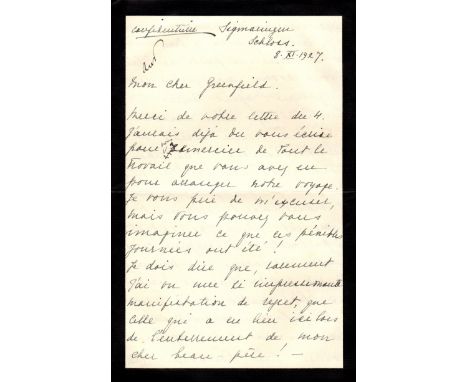 confidentielle Sigmaringen
Schloss.
8. XI. 1927.
Mon cher Greenfield.
Merci de votre lettre du 4.
J'aurais déjà du vous écrire
pour vous remercier de tout le
travail que vous avez eu
pour arranger notre voyage.
Je vous prie de m'excuser,
mais vous pouvez vous
imaginer ce que ces pénibles
journées ont été!
Je dois dire que, rarement
j'ai vu une si impressionnante
manifestation de regret, que
celle qui a eu lieu ici lors
de l'enterrement de mon
cher beau-père! —